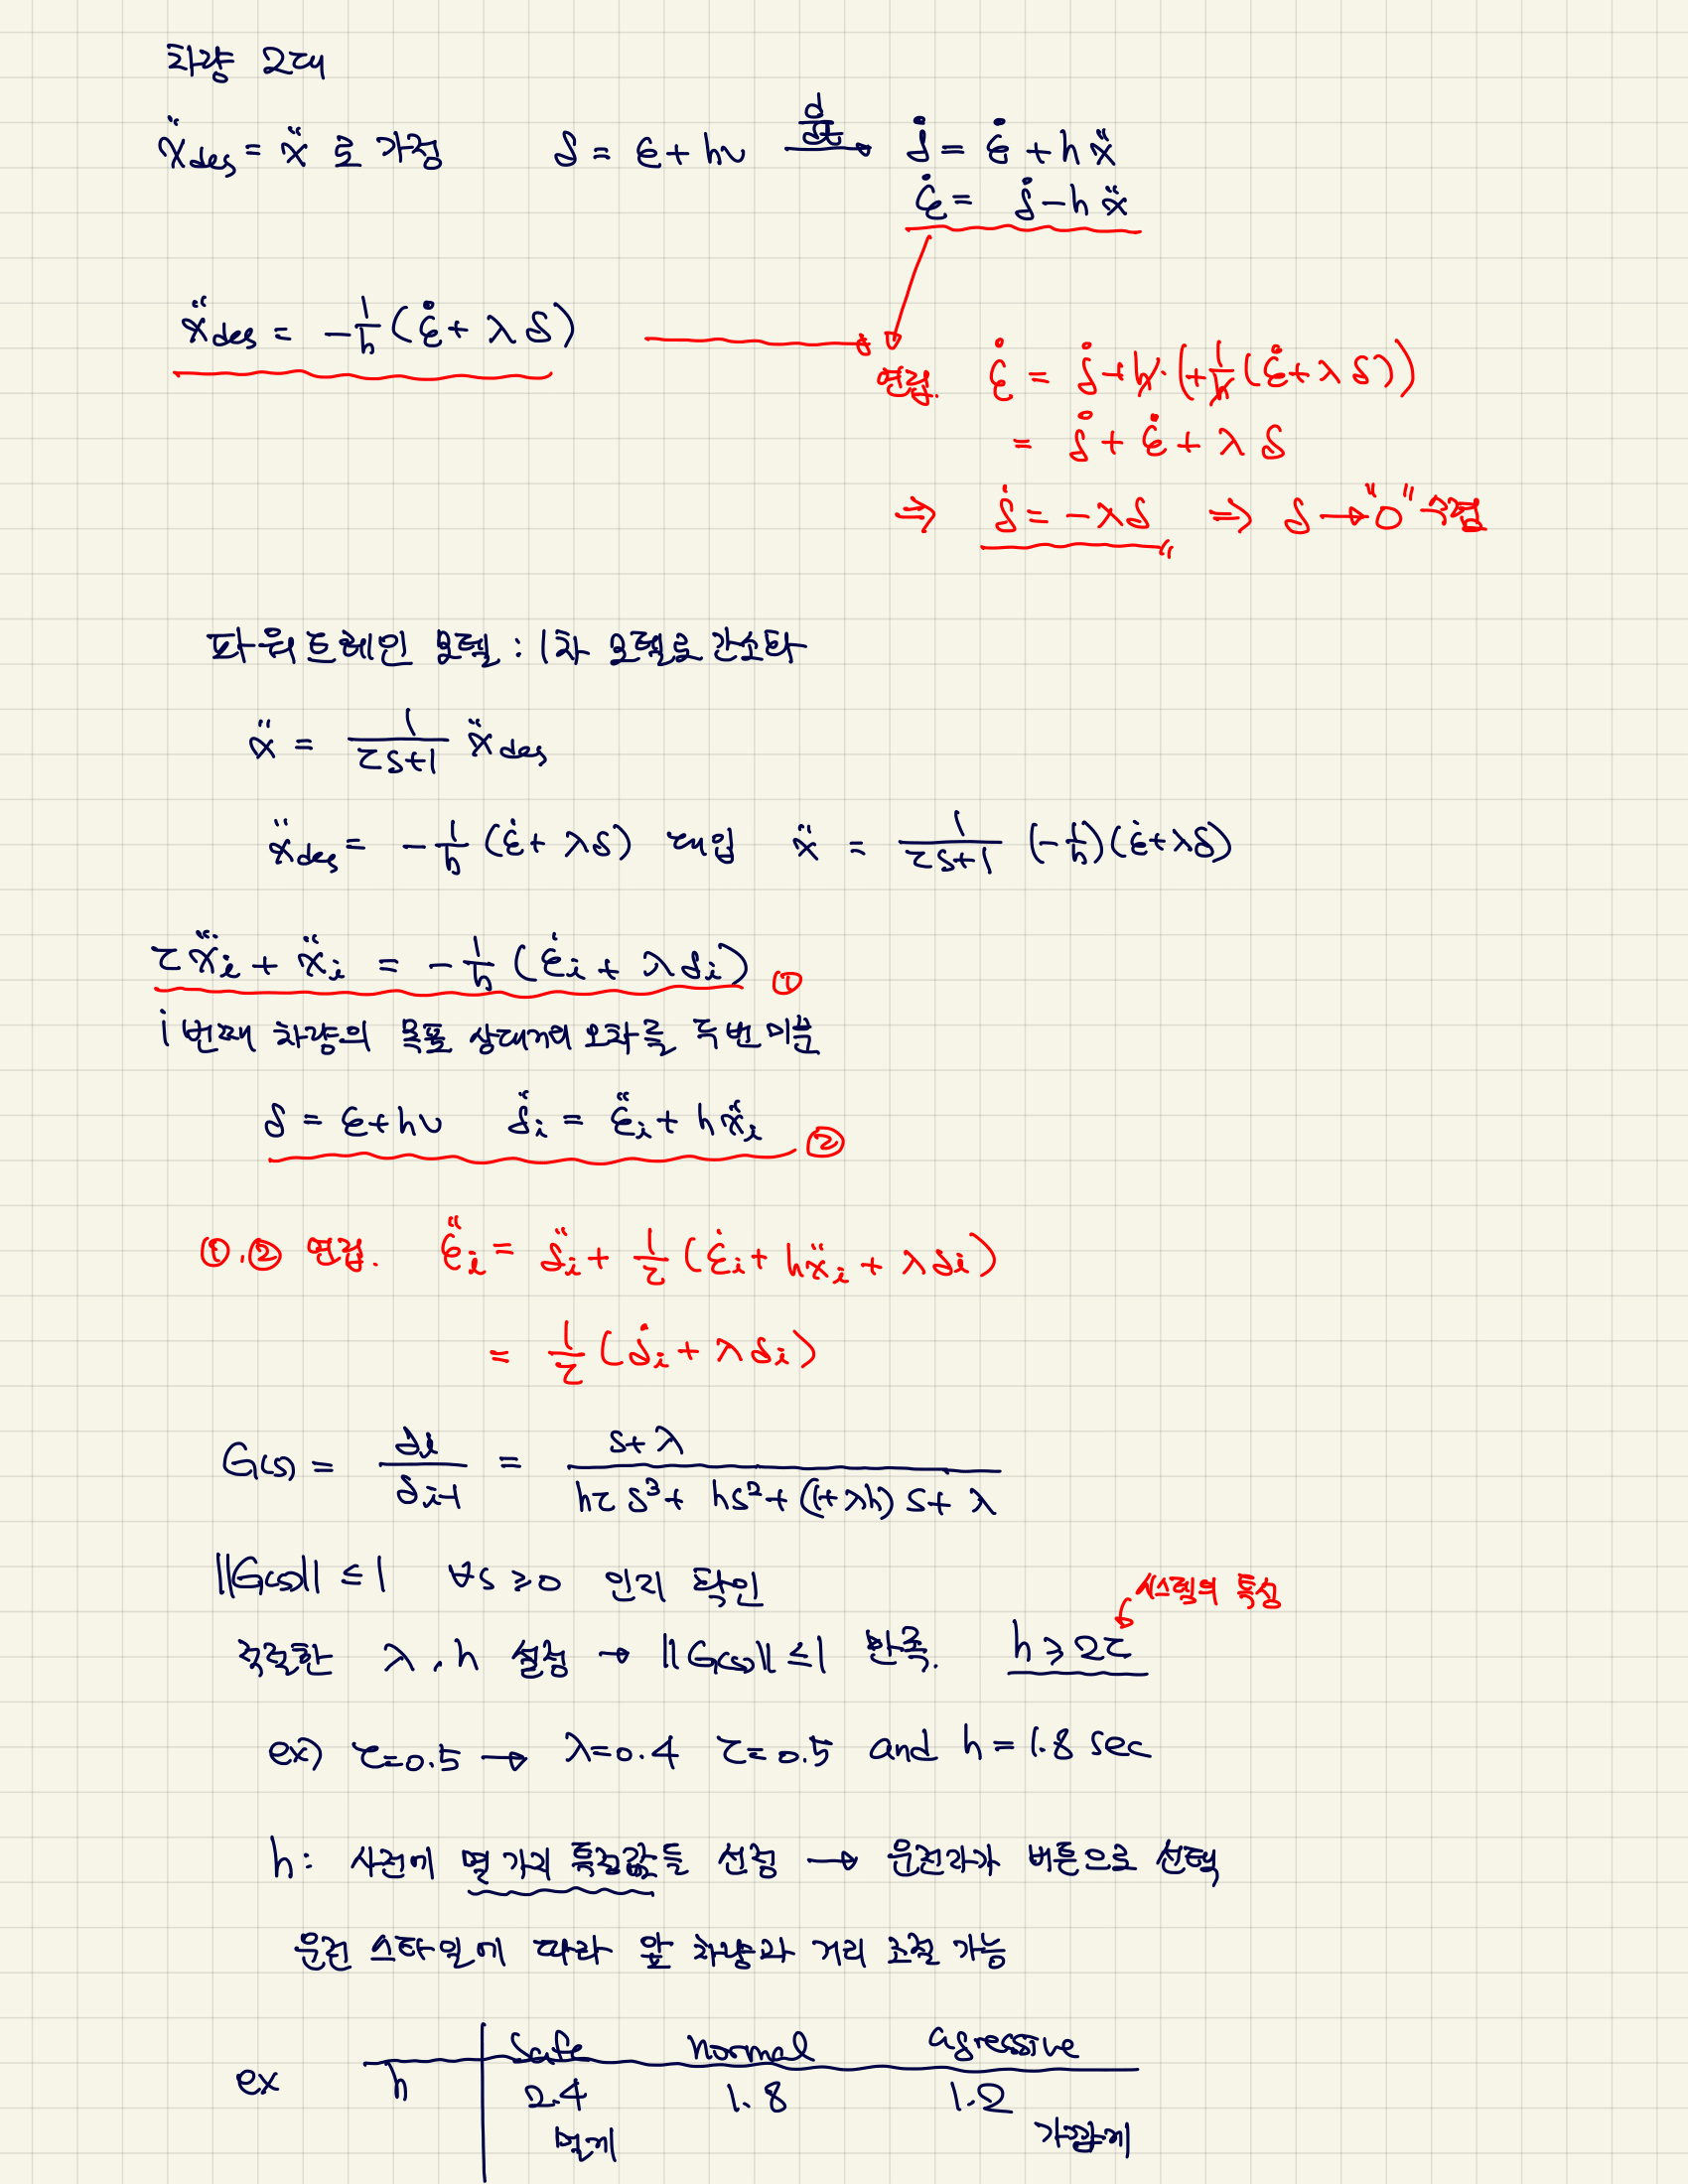 차량 2대
ẍdes = ẍ 로 가정 δ = ε + hv d/dt → δ̇ = ε̇ + hẍ
ε̇ = δ̇ - hẍ
ẍdes = -1/h (ε̇ + λδ)
연립. ε̇ = δ̇ + h·(+1/h (ε̇ + λδ))
= δ̇ + ε̇ + λδ
⇒ δ̇ = -λδ ⇒ δ → "0" 수렴
파워트레인 모델 : 1차 모델로 간소화
ẍ = 1/(τs+1) ẍdes
ẍdes = -1/h (ε̇ + λδ) 대입 ẍ = 1/(τs+1) (-1/h)(ε̇+λδ)
τx⃛i + ẍi = -1/h (ε̇i + λδi) ①
i 번째 차량의 목표 상대거리 오차를 두번 미분
δ = ε+hv δ̈i = ε̈i + hx⃛i ②
①,② 연립. ε̈i = δ̈i + 1/τ (ε̇i + hẍi + λδi)
= 1/τ (δ̇i + λδi)
G(s) = δi/δi-1 = (s+λ)/(hτs³ + hs² + (1+λh)s + λ)
||G(s)|| ≤ 1 ∀s ≥ 0 인지 확인
시스템의 특성
적절한 λ, h 설정 → ||G(s)|| ≤ 1 만족. h ≥ 2τ
ex) τ=0.5 → λ=0.4 τ=0.5 and h = 1.8 sec
h: 사전에 몇 가지 특정값들 선정 → 운전자가 버튼으로 선택
운전 스타일에 따라 앞 차량과 거리 조절 가능
safe normal agressive
ex h 2.4 1.8 1.2
멀게 가깝게